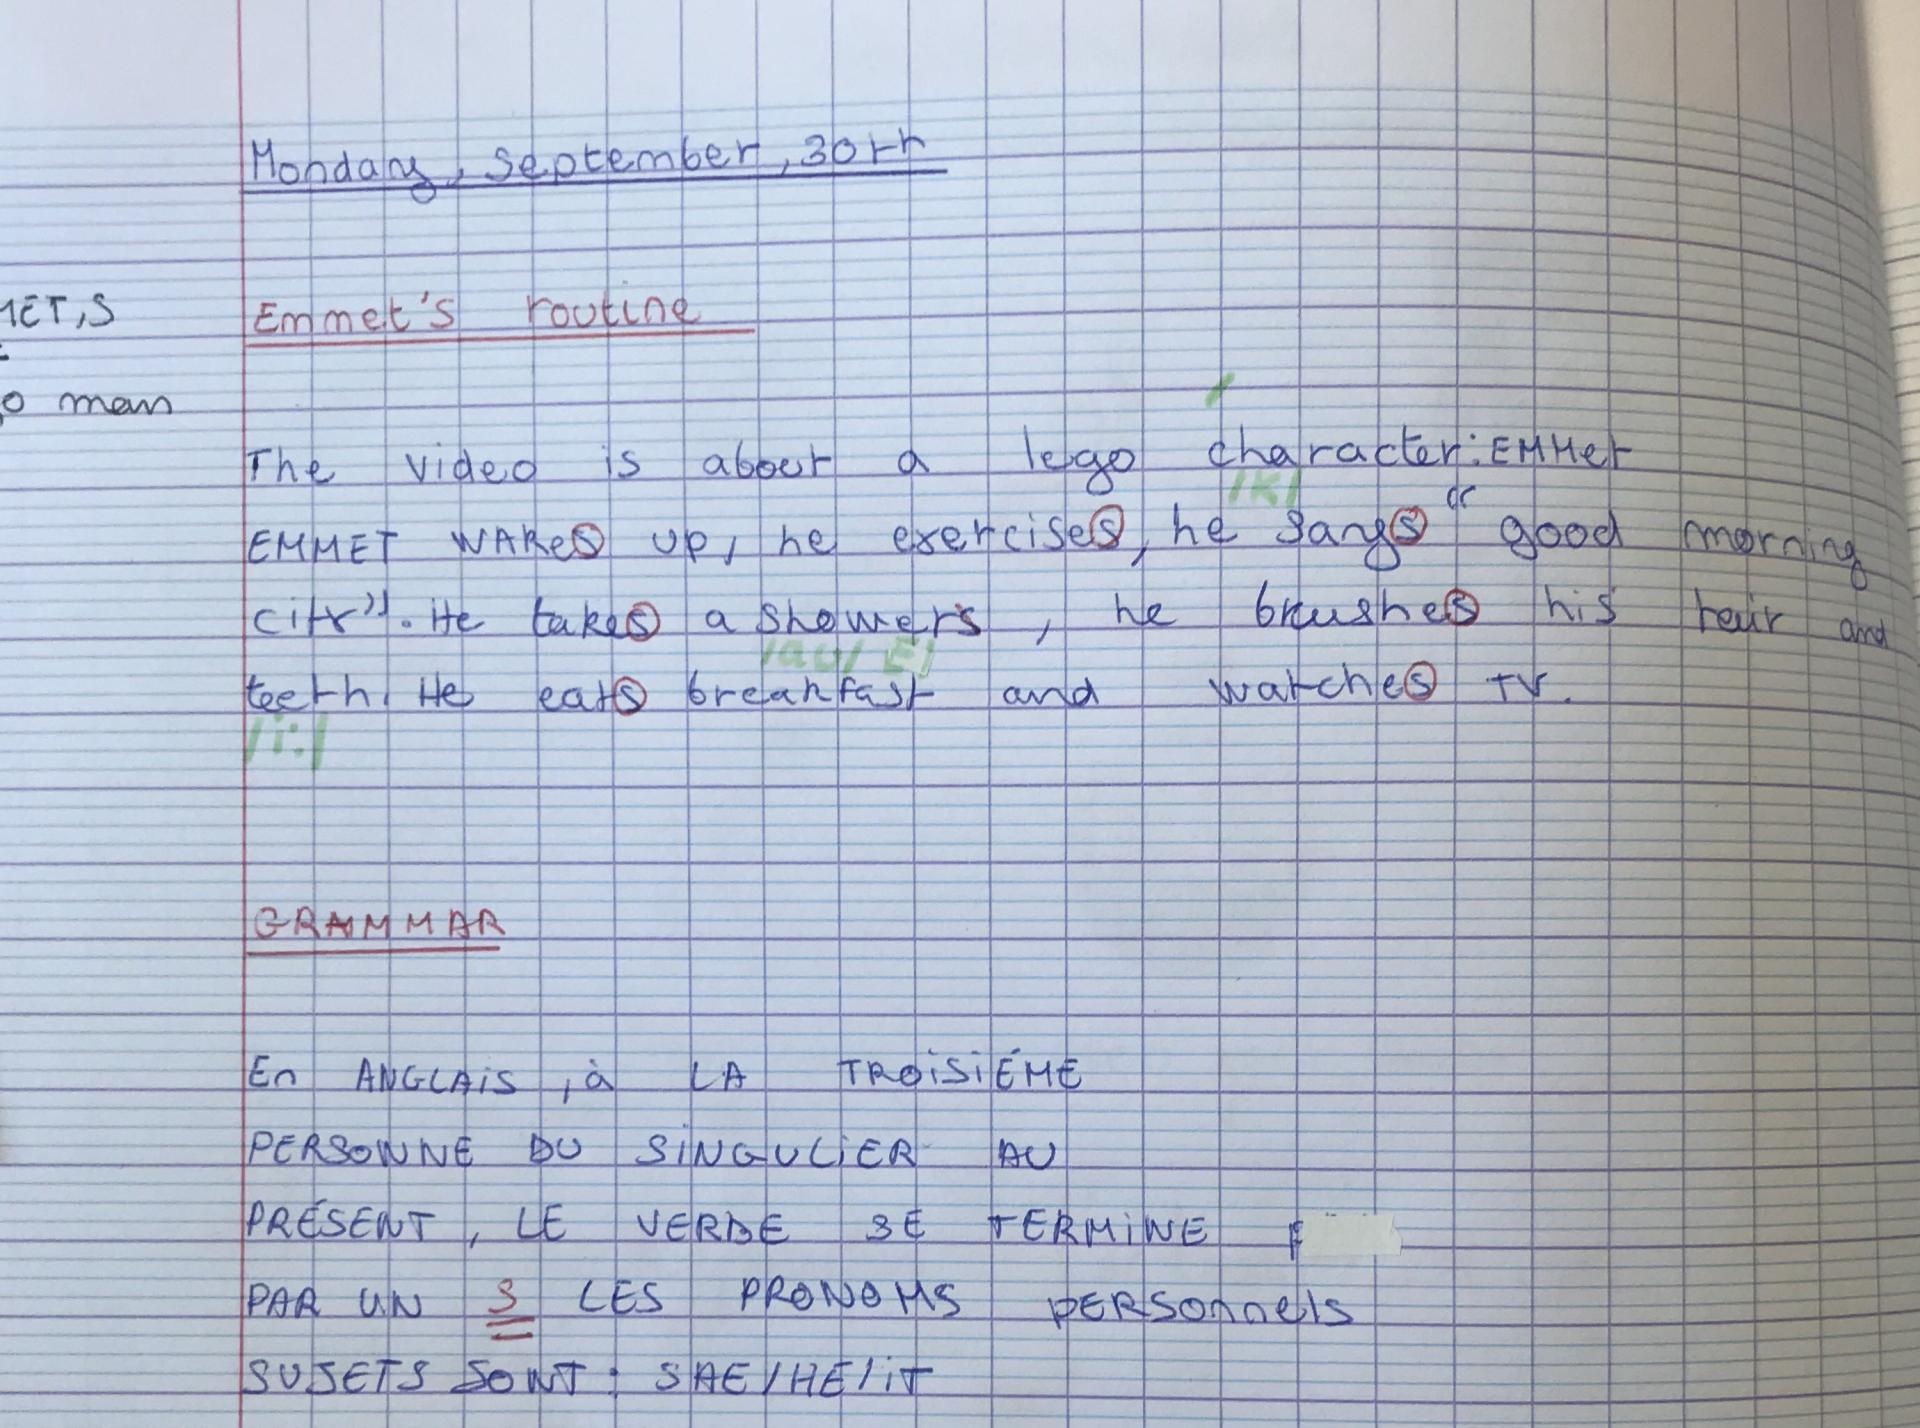 Monday, September, 30th
MET,S
Emmet's routine
o man
The video is about a lego character: EMMet
/K/
EMMET WAKES up, he exercises, he says " good morning
city". He takes a showers, he brushes his hair and
/au/ E/
teeth. He eats breakfast and watches TV.
/i:/
GRAMMAR
En ANGLAiS, à LA TROiSiÉME
PERSONNE DU SiNGULiER AU
PRÉSENT, LE VERBE SE TERMiNE
PAR UN S LES PRONOMS PERSonnels
SUJETS SONT : SHE/HE/iT